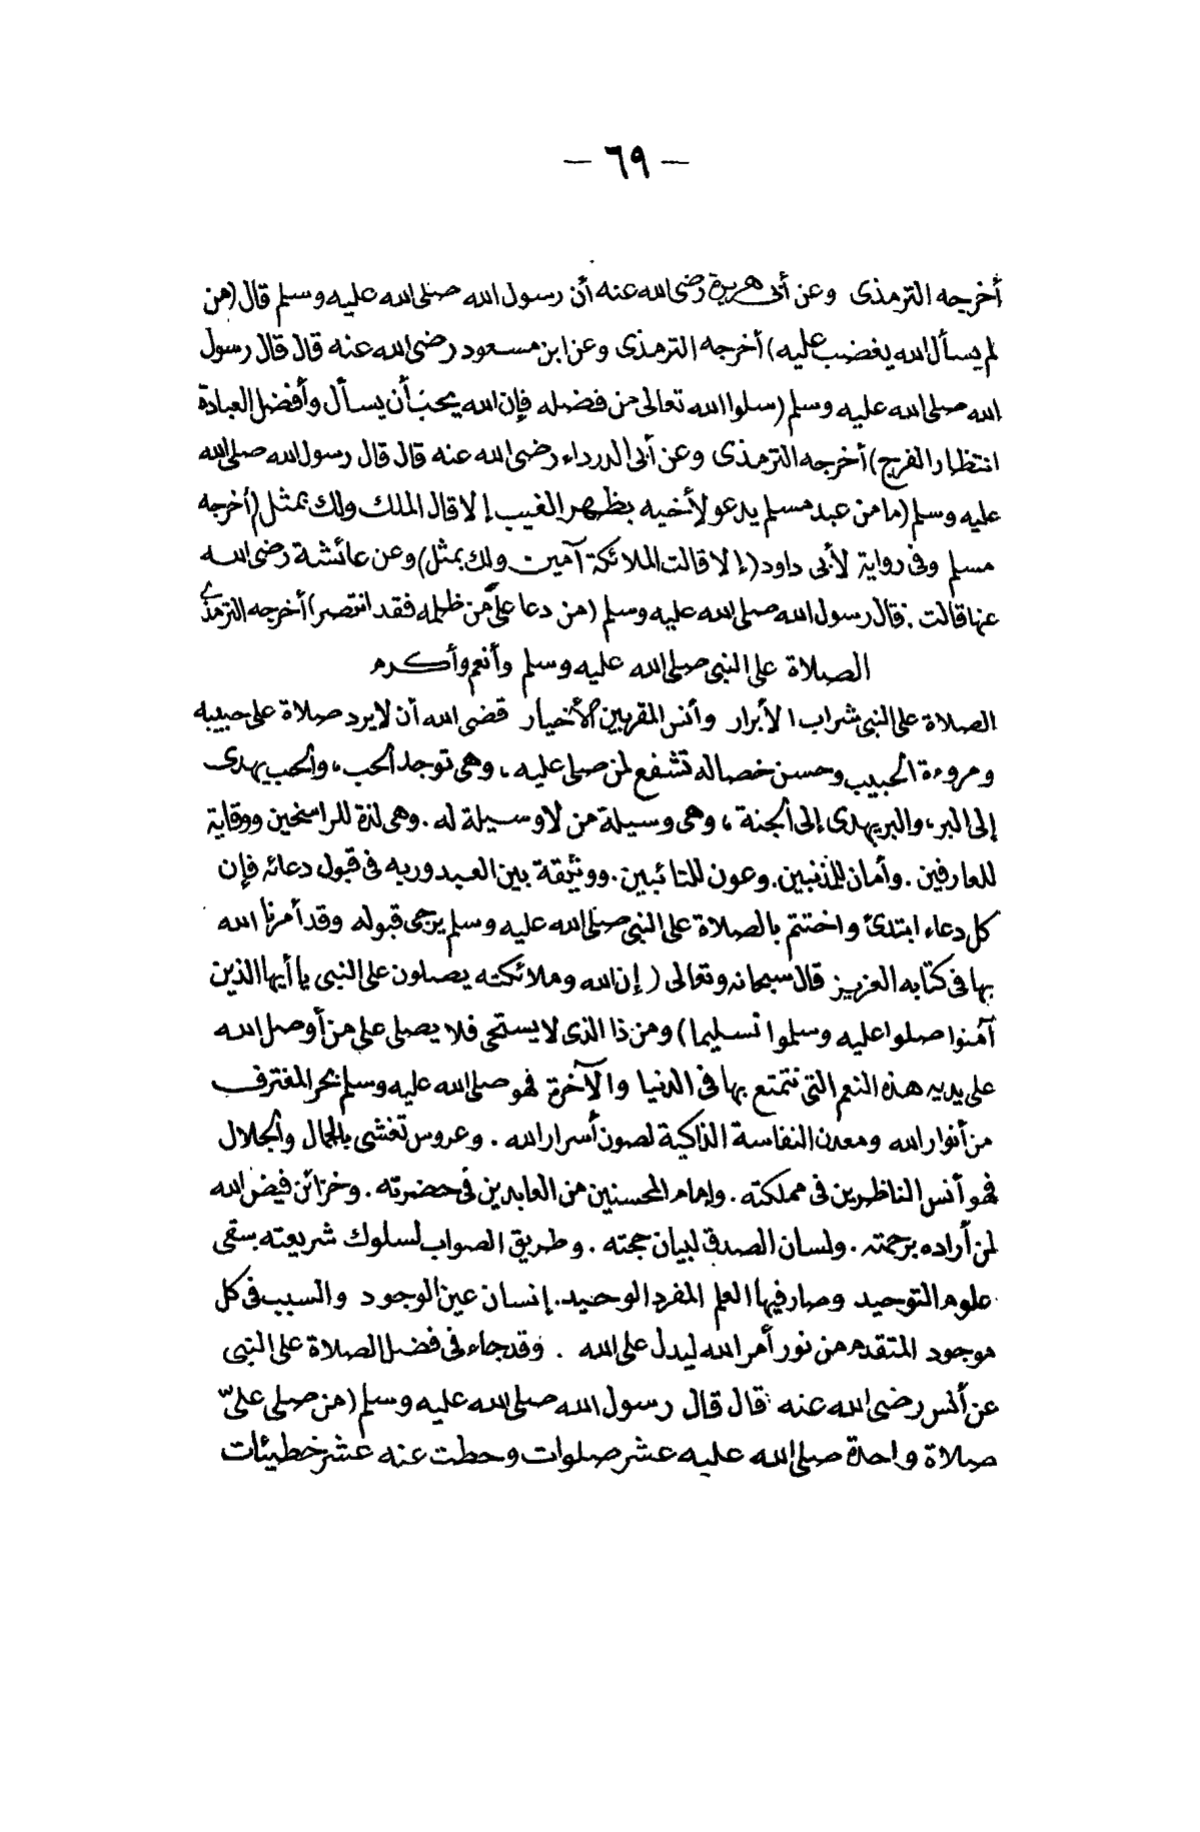 — ٦٩ —
أخرجه الترمذى وعن أبى هريرة رضى الله عنه أن رسول الله صلى الله عليه وسلم قال (من
لم يسأل الله يغضب عليه) أخرجه الترمذى وعن ابن مسعود رضى الله عنه قال قال رسول
الله صلى الله عليه وسلم (سلوا الله تعالى من فضله فإن الله يحب أن يسأل وأفضل العبادة
انتظار الفرج) أخرجه الترمذى وعن أبى الدرداء رضى الله عنه قال قال رسول الله صلى الله
عليه وسلم (ما من عبد مسلم يدعو لأخيه بظهر الغيب إلا قال الملك ولك بمثل (أخرجه
مسلم وفى رواية لأبى داود (إلا قالت الملائكة آمين ولك بمثل) وعن عائشة رضى الله
عنها قالت . قال رسول الله صلى الله عليه وسلم (من دعا على من ظلمه فقد انتصر) أخرجه الترمذى
الصلاة على النبى صلى الله عليه وسلم وأنعم وأكرم
الصلاة على النبى شراب الأبرار وأنس المقربين الأخيار قضى الله أن لا يرد صلاة على حبيبه
ومروءة الحبيب وحسن خصاله تشفع لمن صلى عليه ، وهى توجد الحب ، والحب يهدى
إلى البر ، والبر يهدى إلى الجنة ، وهى وسيلة من لا وسيلة له . وهى لذة للراسخين ووقاية
للعارفين . وأمان للمذنبين . وعون للتائبين . ووثيقة بين العبد وربه فى قبول دعائه فإن
كل دعاء ابتدئ واختتم بالصلاة على النبى صلى الله عليه وسلم يرجى قبوله وقد أمرنا الله
بها فى كتابه العزيز قال سبحانه وتعالى (إن الله وملائكته يصلون على النبى يا أيها الذين
آمنوا صلوا عليه وسلموا تسليما) ومن ذا الذى لا يستحى فلا يصلى على من أوصل الله
على يديه هذه النعم التى نتمتع بها فى الدنيا والآخرة فهو صلى الله عليه وسلم بحر المغترف
من أنوار الله ومعدن النفاسة الذاكية لصون أسرار الله . وعروس تغشى بالجمال والجلال
فهو أنس الناظرين فى مملكته . وإمام المحسنين من العابدين فى حضرته . وخزائن فيض الله
لمن أراده برحمته . ولسان الصدق لبيان حجته . وطريق الصواب لسلوك شريعته بسقى
علوم التوحيد وصار فيها العلم المفرد الوحيد . إنسان عين الوجود والسبب فى كل
موجود المتقدم من نور أمر الله ليدل على الله . وقد جاء فى فضل الصلاة على النبى
عن أنس رضى الله عنه قال قال رسول الله صلى الله عليه وسلم (من صلى علىّ
صلاة واحدة صلى الله عليه عشر صلوات وحطت عنه عشر خطيئات